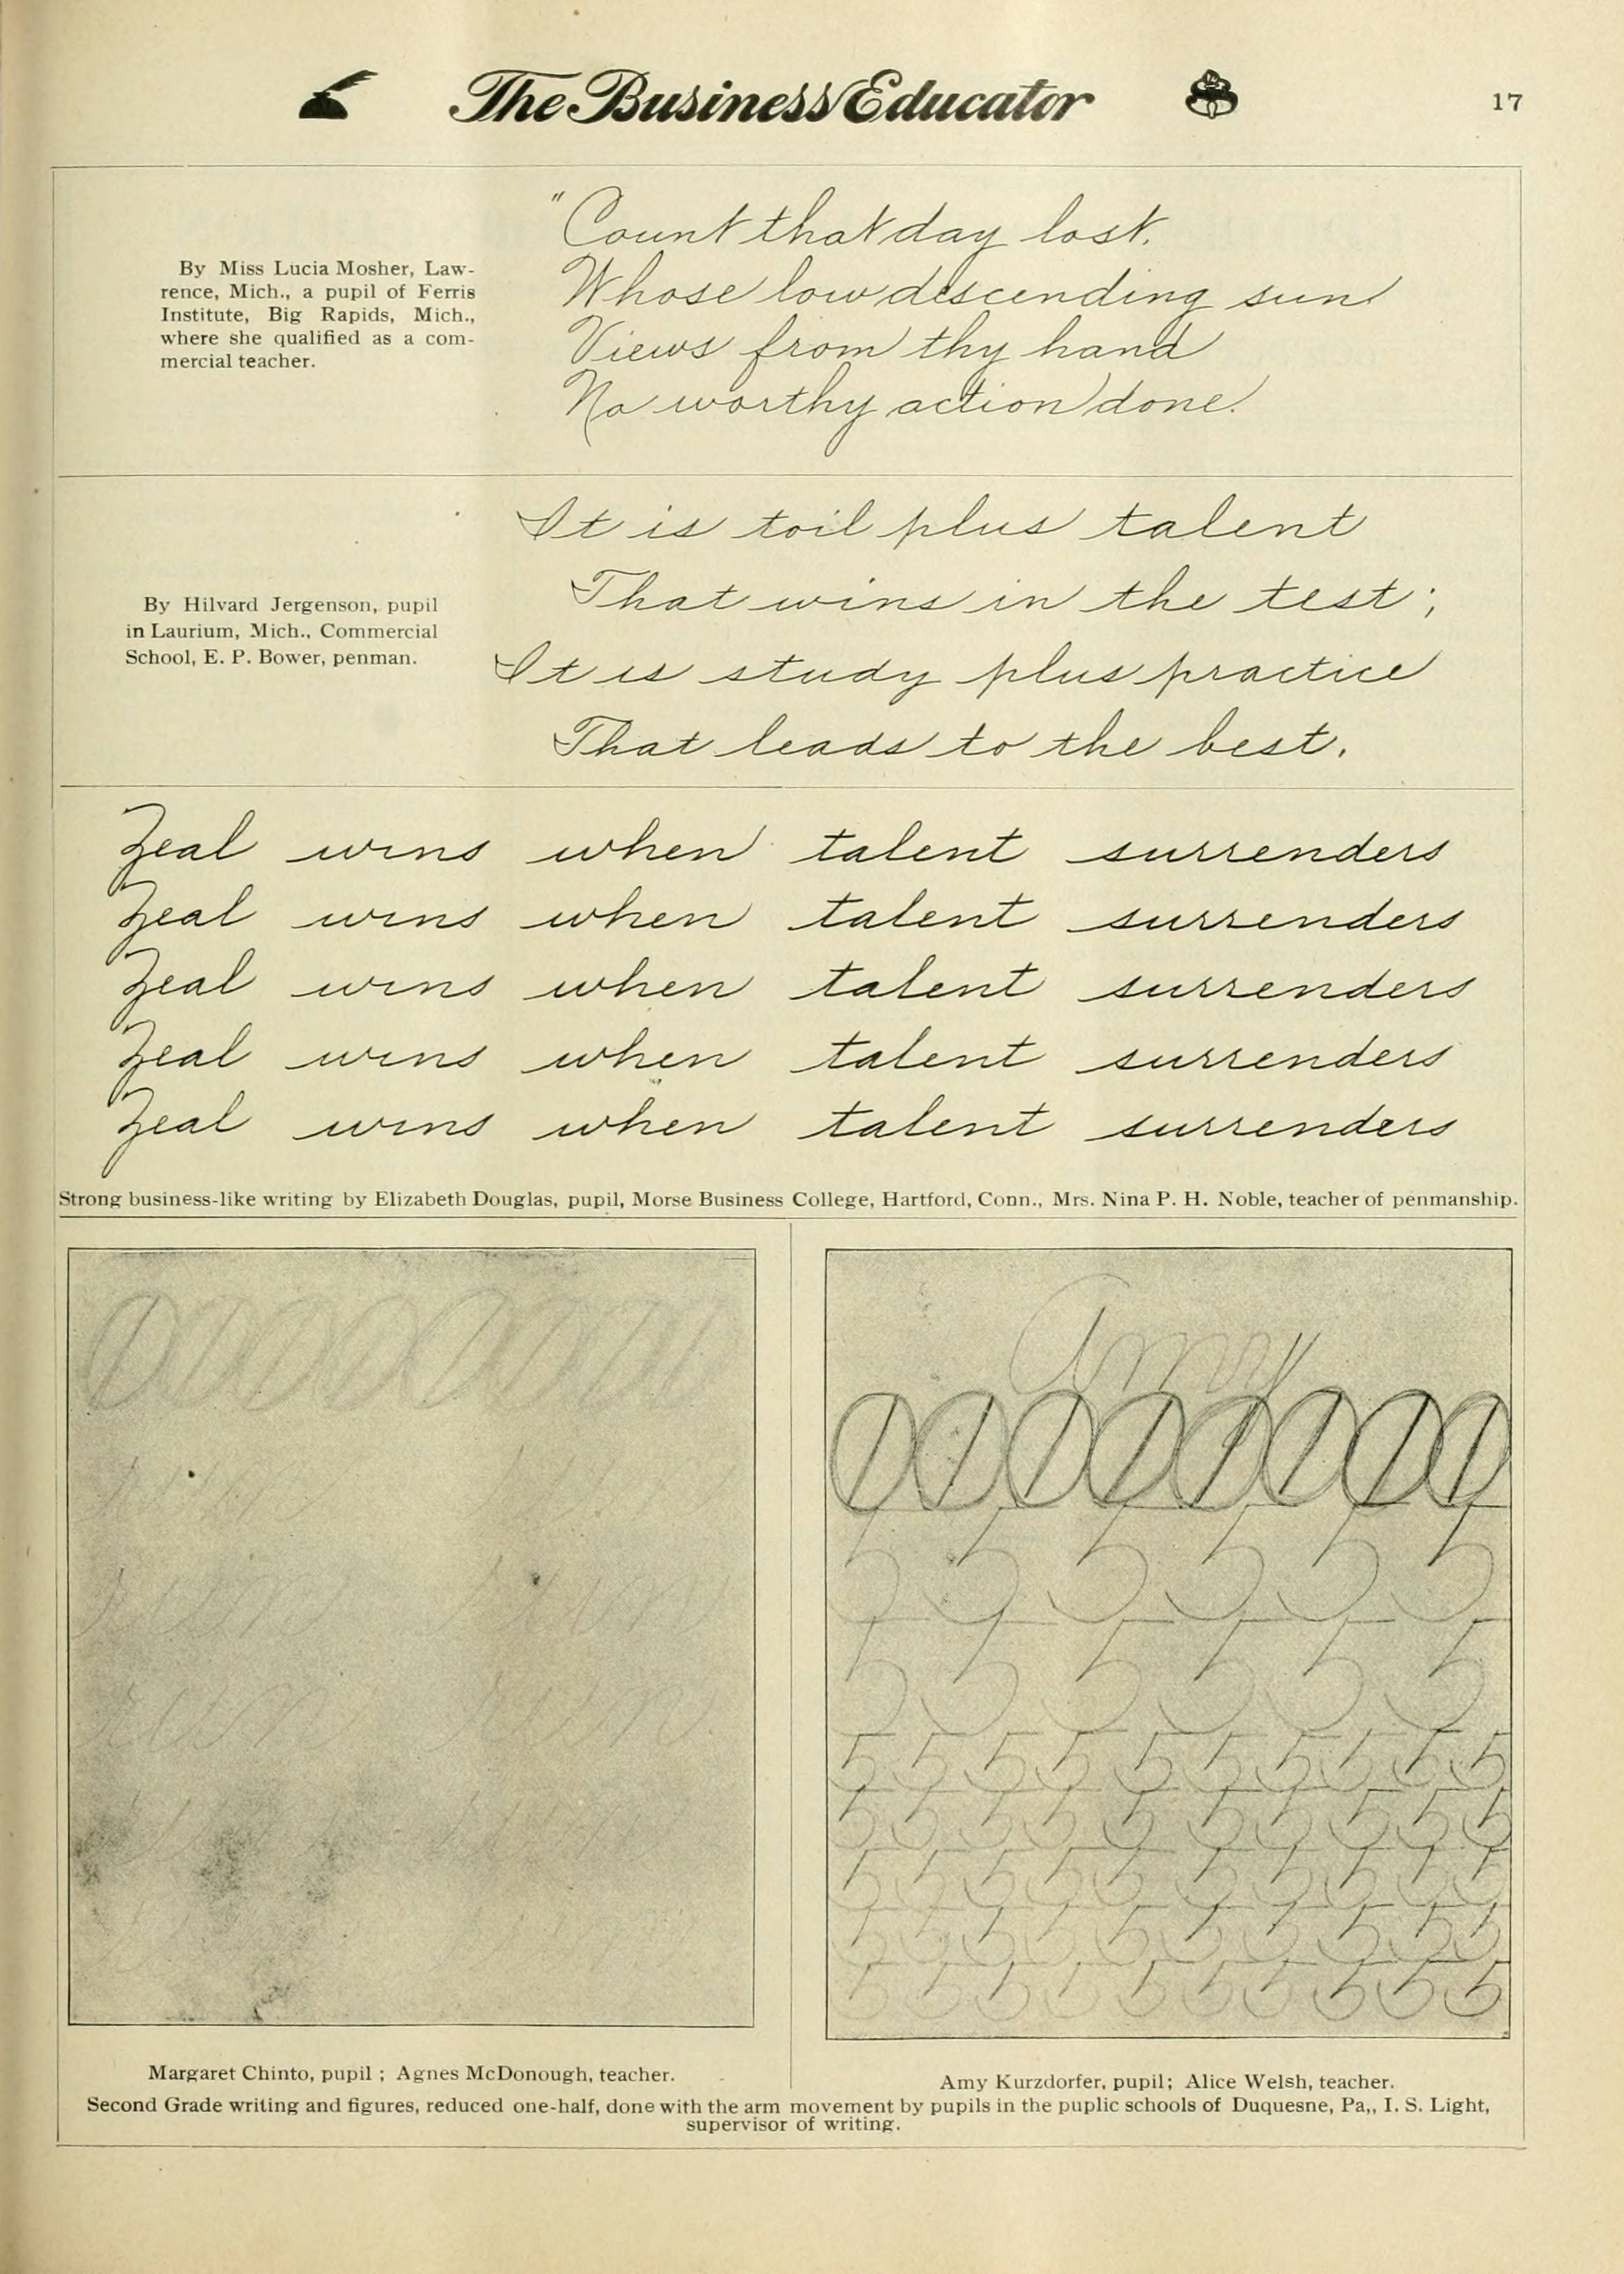 The Business Educator
17
By Miss Lucia Mosher, Law-
rence, Mich., a pupil of Ferris
Institute, Big Rapids, Mich.,
where she qualified as a com-
mercial teacher.
"Count that day lost.
Whose low descending sun
Views from thy hand
No worthy action done.
By Hilvard Jergenson, pupil
in Laurium, Mich., Commercial
School, E. P. Bower, penman.
It is toil plus talent
That wins in the test;
It is study plus practice
That leads to the best.
Zeal wins when talent surrenders
Zeal wins when talent surrenders
Zeal wins when talent surrenders
Zeal wins when talent surrenders
Zeal wins when talent surrenders
Strong business-like writing by Elizabeth Douglas, pupil, Morse Business College, Hartford, Conn., Mrs. Nina P. H. Noble, teacher of penmanship.
run run
run run
Amy
5 5 5 5 5 5
5 5 5 5 5 5
5 5 5 5 5 5 5 5 5
5 5 5 5 5 5 5 5 5
5 5 5 5 5 5 5 5 5
5 5 5 5 5 5 5 5 5
5 5 5 5 5 5 5 5 5
Margaret Chinto, pupil ; Agnes McDonough, teacher.
Amy Kurzdorfer, pupil; Alice Welsh, teacher.
Second Grade writing and figures, reduced one-half, done with the arm movement by pupils in the puplic schools of Duquesne, Pa,, I. S. Light,
supervisor of writing.